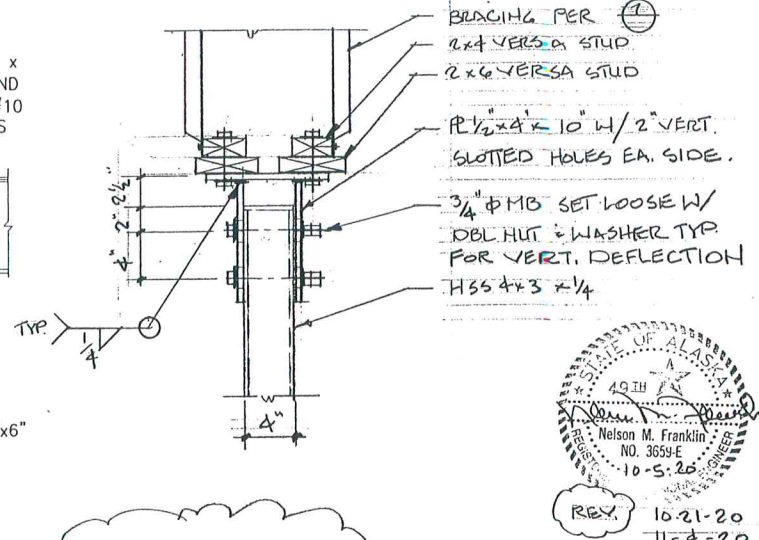 x
ND
#10
S
BRACING PER 7
2x4 VERSA STUD
2x6 VERSA STUD
PL 1/2" x 4" x 10" W/ 2" VERT.
SLOTTED HOLES EA. SIDE.
3/4" Φ MB SET LOOSE W/
DBL NUT & WASHER TYP.
FOR VERT. DEFLECTION
HSS 4x3 x 1/4
2 1/2"
2"
4"
TYP.
1/4
4"
x6"
STATE OF ALASKA
49TH
Nelson M. Franklin
NO. 3659-E
10-5-20
REV. 10-21-20
11-4-20